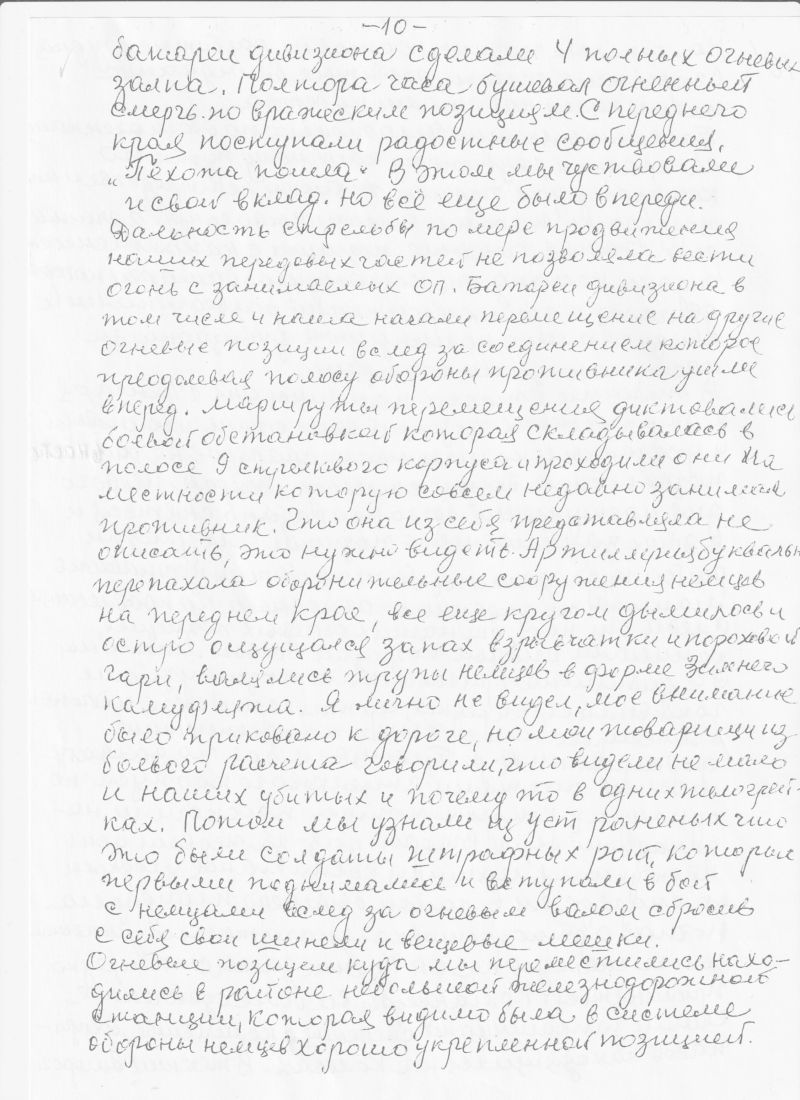 -10-
батареи дивизиона сделали 4 полных огневых
залпа. Полтора часа бушевал огненный
смерч по вражеским позициям. С переднего
края поступали радостные сообщения,
"Пехота пошла". В этом мы чуствовали
и свой вклад. Но всё еще было впереди.
Дальность стрельбы по мере продвижения
наших передовых частей не позволяла вести
огонь с занимаемых ОП. Батареи дивизиона в
том числе и наша начали перемещение на другие
огневые позиции вслед за соединением которое
преодолевая полосу обороны противника ушли
вперед. Маршруты перемещения диктовались
боевой обстановкой которая складывалась в
полосе 9 стрелкового корпуса и проходили они на
местности которую совсем недавно занимал
противник. Что она из себя представляла не
описать, это нужно видеть. Артиллерия букваль
перепахала оборонительные сооружения немцев
на переднем крае, все еще кругом дымилось и
остро ощущался запах взрывчатки и пороховой
гари, валялись трупы немцев в форме зимнего
камуфляжа. Я лично не видел, мое внимание
было приковано к дороге, но мои товарищи из
боевого расчета говорили, что видели не мало
и наших убитых и почему то в одних телогрей-
ках. Потом мы узнали из уст раненых что
это были солдаты штрафных рот, которые
первыми поднимались и вступали в бой
с немцами вслед за огневым валом сбросив
с себя свои шинели и вещевые мешки.
Огневые позиции куда мы переместились нахо-
дились в районе небольшой железнодорожной
станции, которая видимо была в системе
обороны немцев хорошо укрепленной позицией.